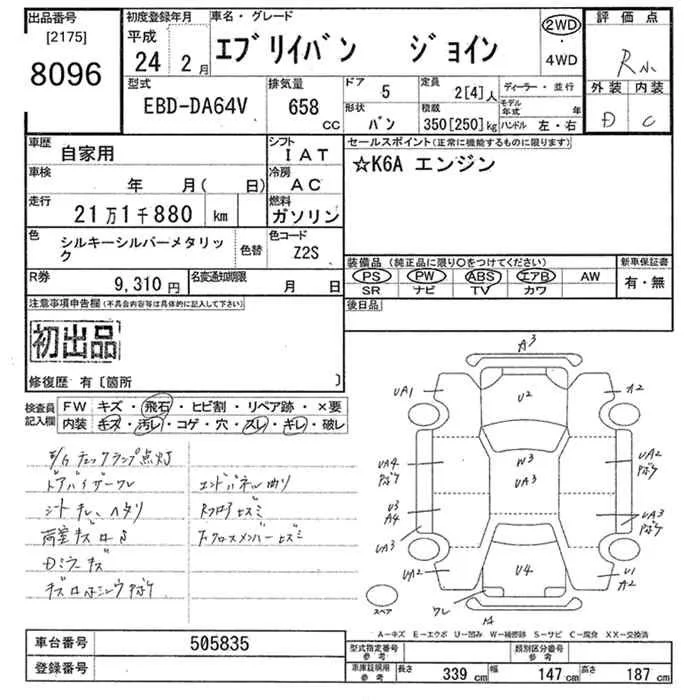 出品番号
[2175]
8096
初度登録年月
平成
24 2月
車名・グレード
エブリイバン ジョイン
2WD
・
4WD
評価点
R小
外装 内装
D C
型式
EBD-DA64V
排気量
658 cc
ドア
5
形状
バン
定員
2[4]人
積載
350[250]kg
ディーラー・並行
モデル年式 年
ハンドル 左・右
車歴
自家用
シフト
IAT
車検
年 月( 日)
冷房
AC
走行
21万1千880 km
燃料
ガソリン
色
シルキーシルバーメタリック
色替
色コード
Z2S
R券
9,310円
名変通知期限
月 日
セールスポイント(正常に機能するものに限ります)
☆K6A エンジン
装備品(純正品に限り○をつけてください)
PS PW ABS エアB AW
SR ナビ TV カワ
新車保証書
有・無
後日品
注意事項申告欄(不具合内容等は具体的に記入して下さい)
初出品
修復歴 有〔箇所 〕
検査員記入欄
FW キズ・飛石・ヒビ割・リペア跡・×要
内装 キズ・汚レ・コゲ・穴・スレ・キレ・破レ
E/Gチェックランプ点灯
ドアバイザーワレ
シートキレ、ヘタリ
荷室キズ
Dミラーキズ
エンドパネル曲り
A3
UA1
U2
A2
UA4
W3
UA3
UA2
U3
A4
UA3
UA3
UA2
U4
U1
A2
ワレ
スペア
A−キズ E−エクボ U−凹み W−補修跡 S−サビ C−腐食 XX−交換済
車台番号
505835
登録番号
型式指定番号
参考
類別区分番号
参考
車庫証明用
参考
長さ 339 cm 幅 147 cm 高さ 187 cm